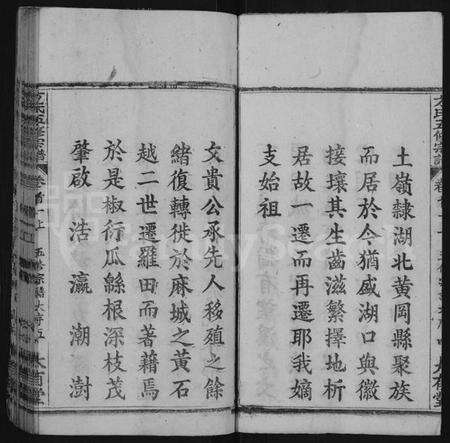 土嶺隸湖北黃岡縣聚族
而居於今猶盛湖口與徽
接壤其生齒滋繁擇地析
居故一遷而再遷耶我嫡
支始祖
文貴公承先人移殖之餘
緒復轉徙於麻城之黃石
越二世遷羅田而著籍焉
於是椒衍瓜緜根深枝茂
肇啟浩瀛潮澍
五修宗譜
卷首上